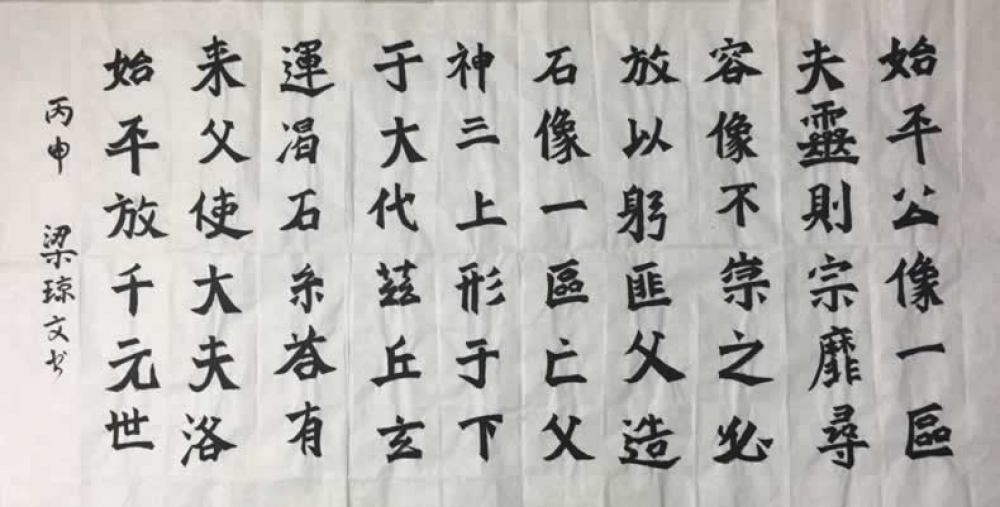 始平公像一區
夫靈則宗靡尋
容像不崇之必
放以躬匪父造
石像一區亡父
神三上形于下
于大代茲丘玄
運冯石糸答有
来父使大夫洛
始平放千元世
丙申 梁琼文书